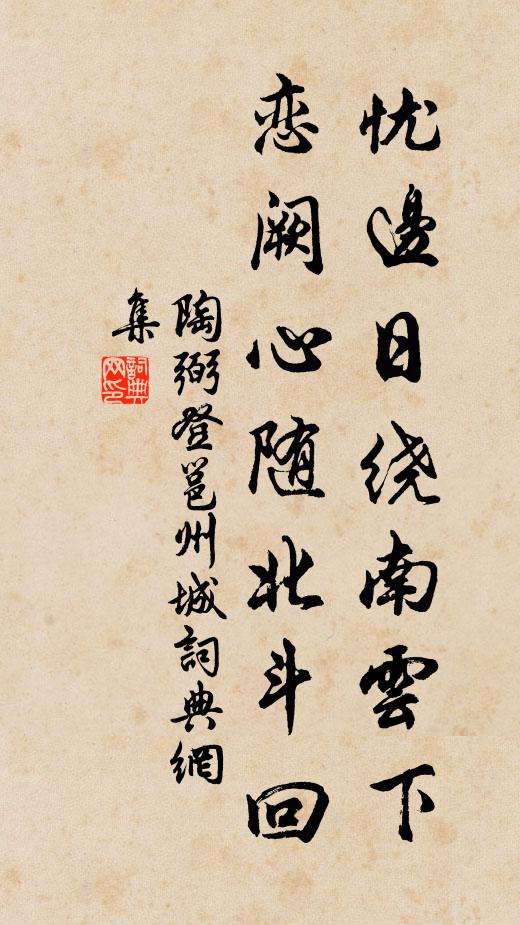 忧邊日绕南雲下
恋阙心随北斗回
陶弼登邕州城詞典網
集
詞典网印